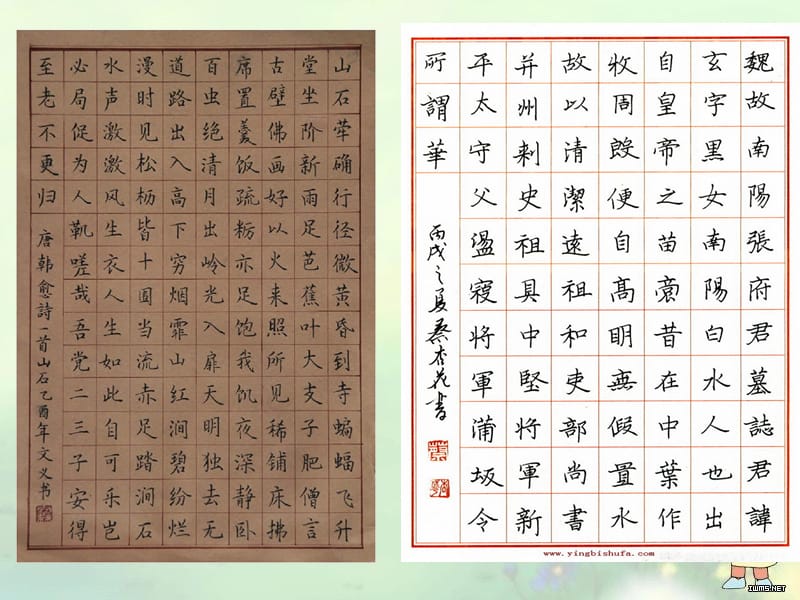 山石荦确行径微黄昏到寺蝙蝠飞升
堂坐阶新雨足芭蕉叶大支子肥僧言
古壁佛画好以火来照所见稀铺床拂
席置羹饭疏粝亦足饱我饥夜深静卧
百虫绝清月出岭光入扉天明独去无
道路出入高下穷烟霏山红涧碧纷烂
漫时见松枥皆十围当流赤足踏涧石
水声激激风生衣人生如此自可乐岂
必局促为人靰嗟哉吾党二三子安得
至老不更归
唐韩愈詩一首山石乙酉年文义书
魏故南陽張府君墓誌君諱
玄字黑女南陽白水人也出
自皇帝之苗裔昔在中葉作
牧周殷便自髙明無假置水
故以清潔遠祖和吏部尚書
并州刺史祖具中堅將軍新
平太守父盪寇將軍蒲坂令
所謂華
丙戌之夏蔡杏花書
www.yingbishufa.com
IWMS.NET